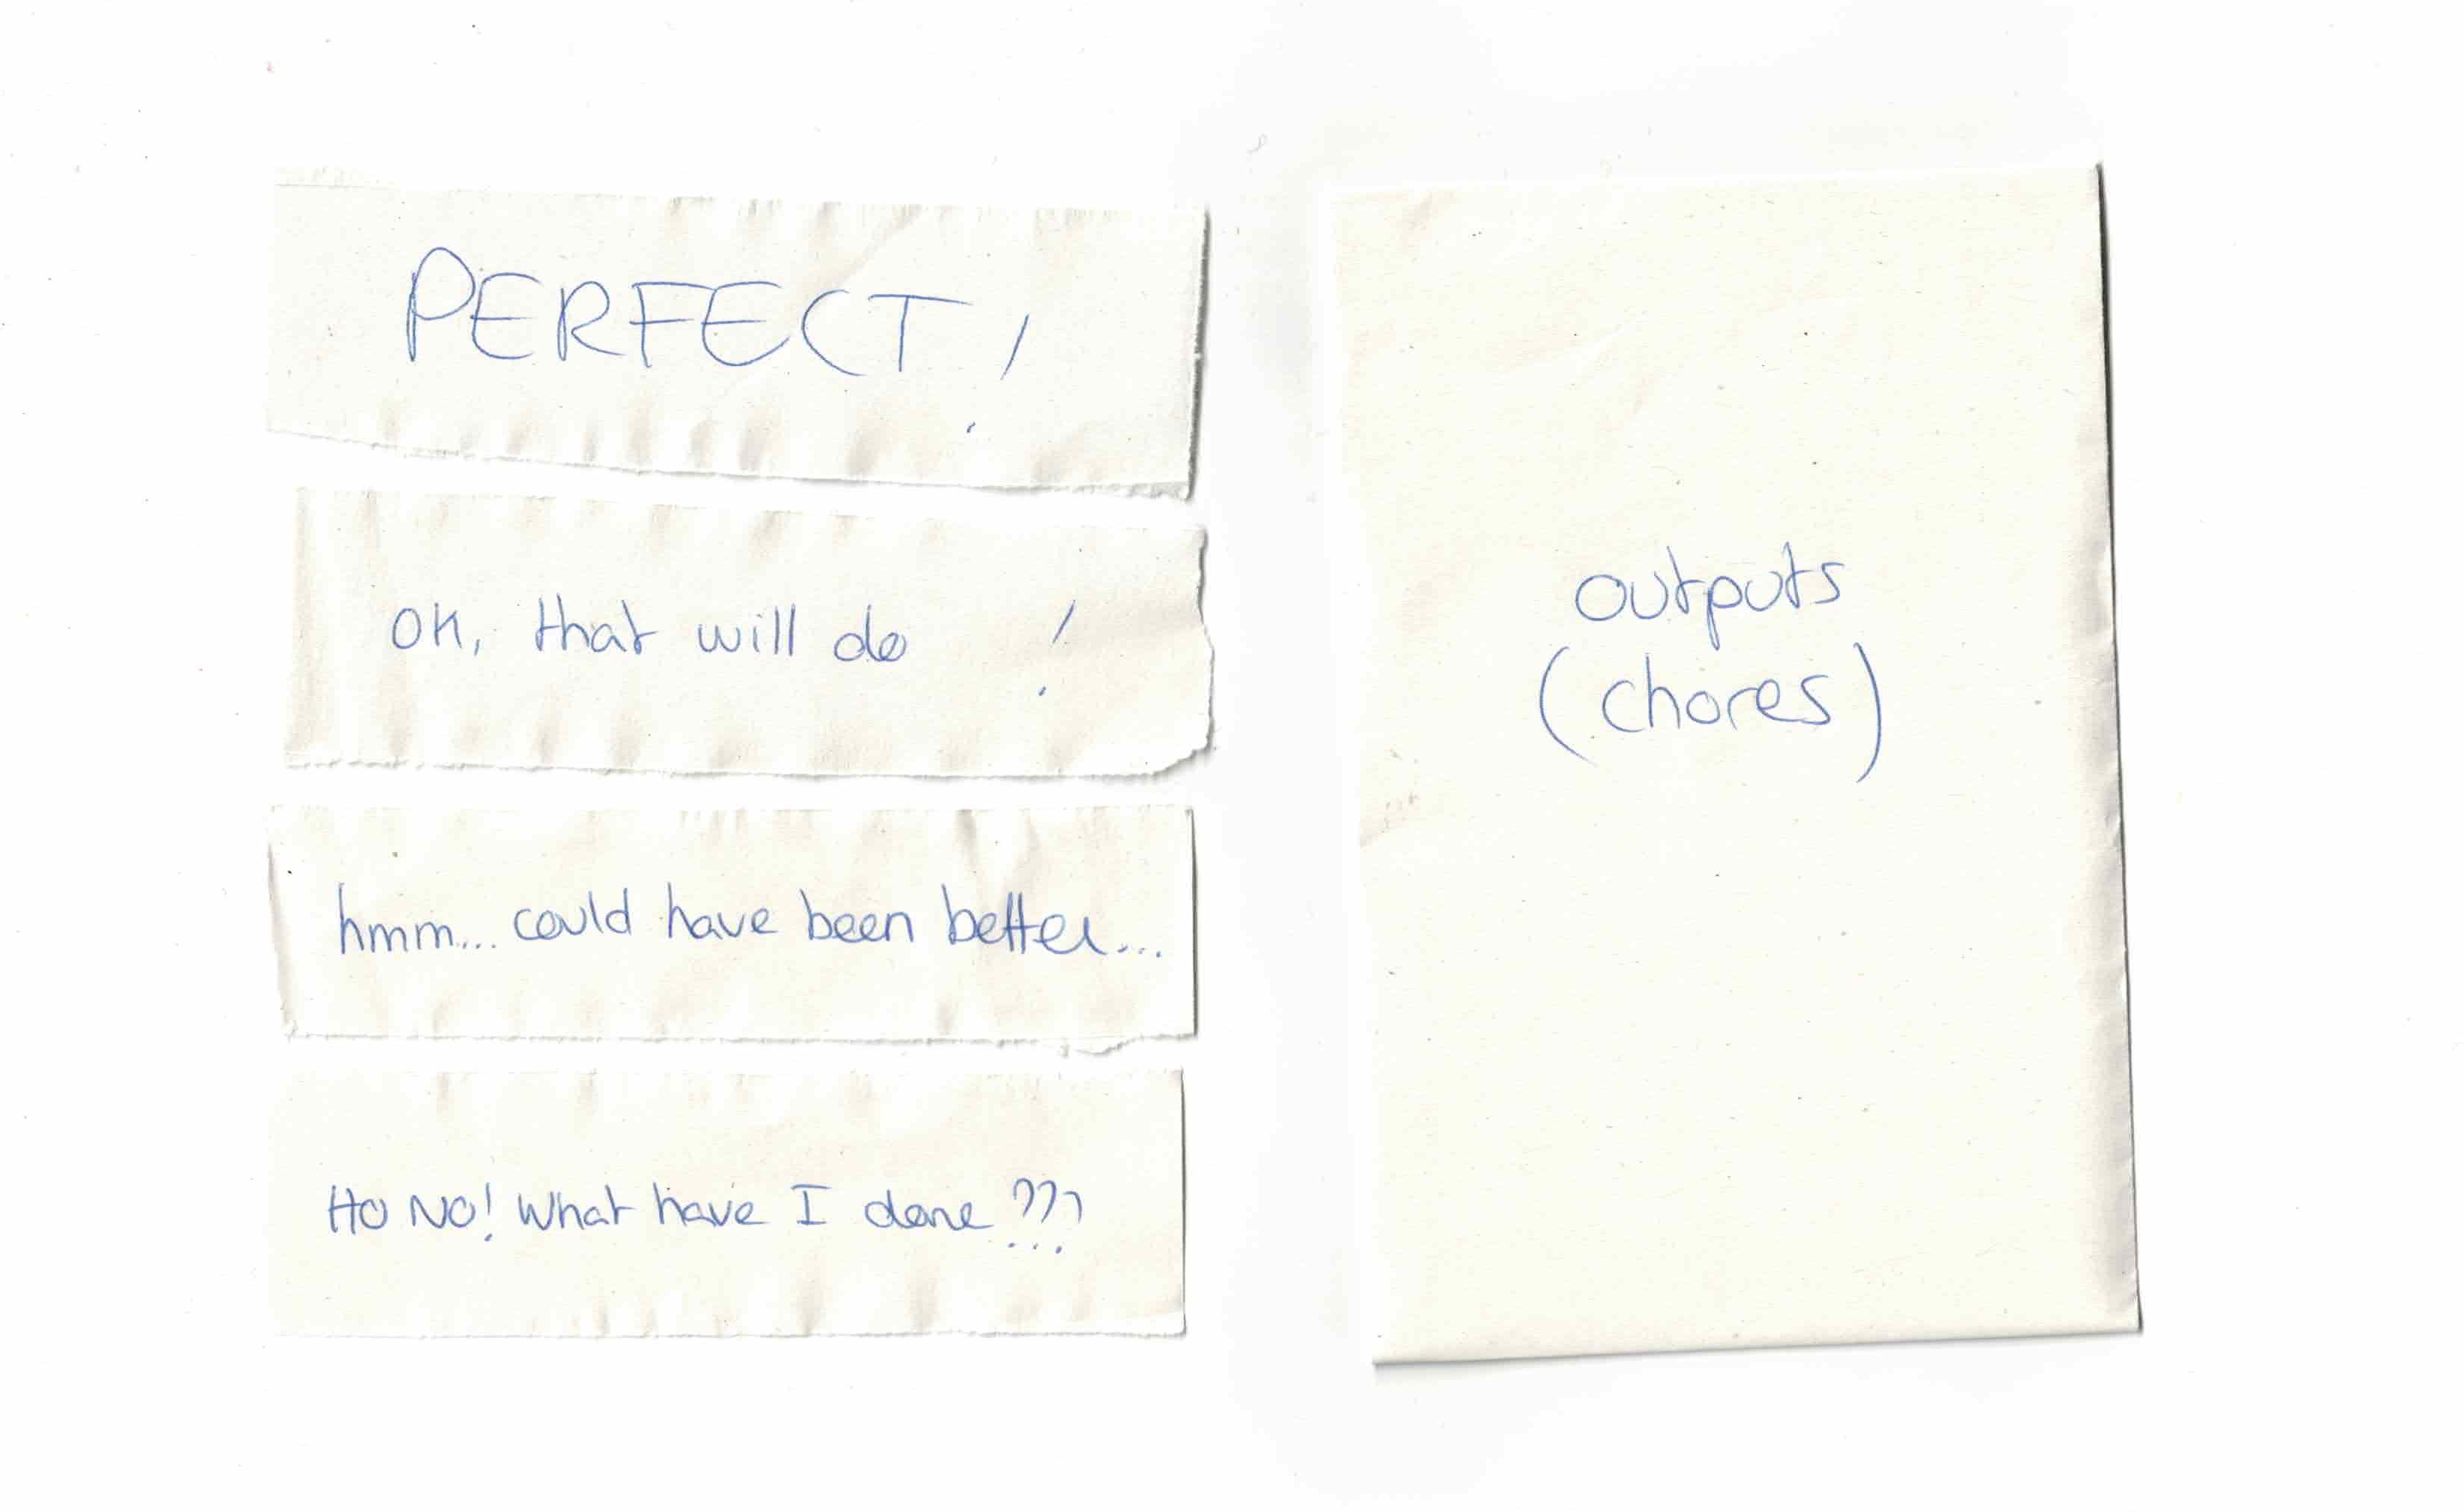 PERFECT!
OK, that will do !
hmm... could have been better...
HO NO! What have I done ???
outputs
(chores)